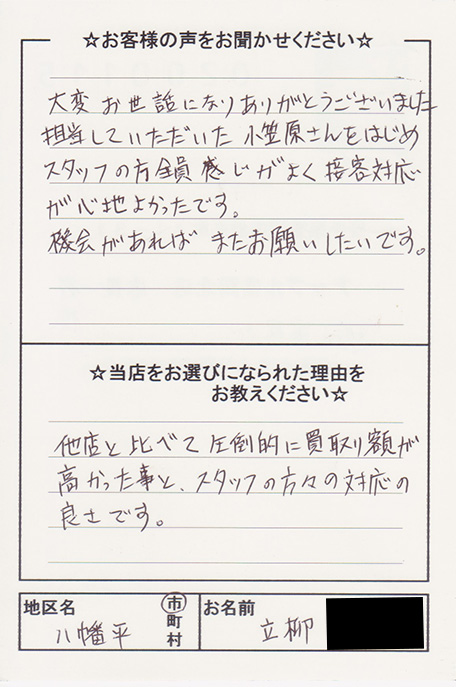 ☆お客様の声をお聞かせください☆
大変お世話になりありがとうございました
担当していただいた小笠原さんをはじめ
スタッフの方全員感じがよく接客対応
が心地よかったです。
機会があればまたお願いしたいです。
☆当店をお選びになられた理由を
お教えください☆
他店と比べて圧倒的に買取り額が
高かった事と、スタッフの方々の対応の
良さです。
地区名 八幡平 市町村
お名前 立柳